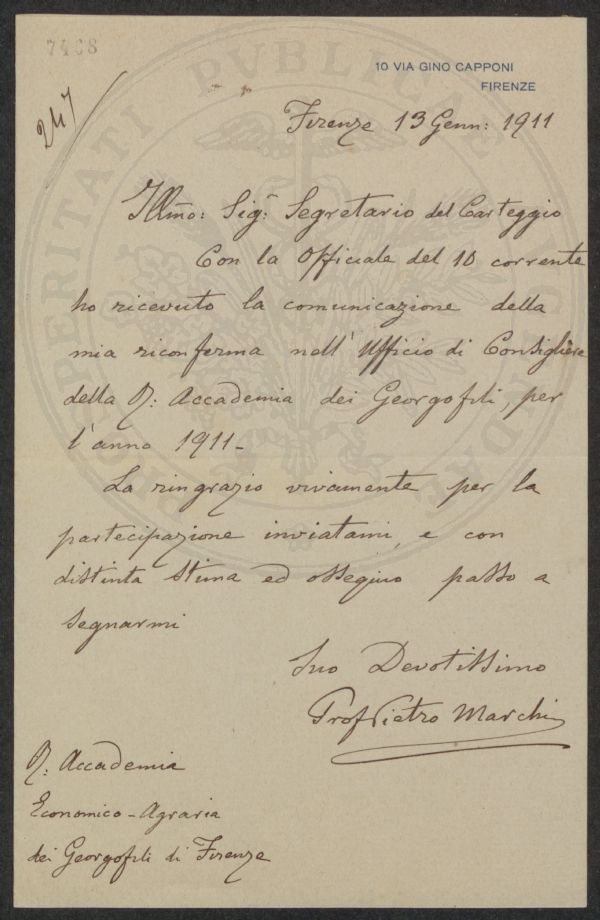 7468
10 VIA GINO CAPPONI
FIRENZE
247
Firenze 13 Genn: 1911
Illmo: Sigr. Segretario del Carteggio
Con la Officiale del 10 corrente
ho ricevuto la comunicazione della
mia riconferma nell'Ufficio di Consigliere
della R: Accademia dei Georgofili, per
l'anno 1911-
La ringrazio vivamente per la
partecipazione inviatami, e con
distinta stima ed ossequio passo a
segnarmi
Suo Devotissimo
Prof Pietro Marchi
R: Accademia
Economico-Agraria
dei Georgofili di Firenze